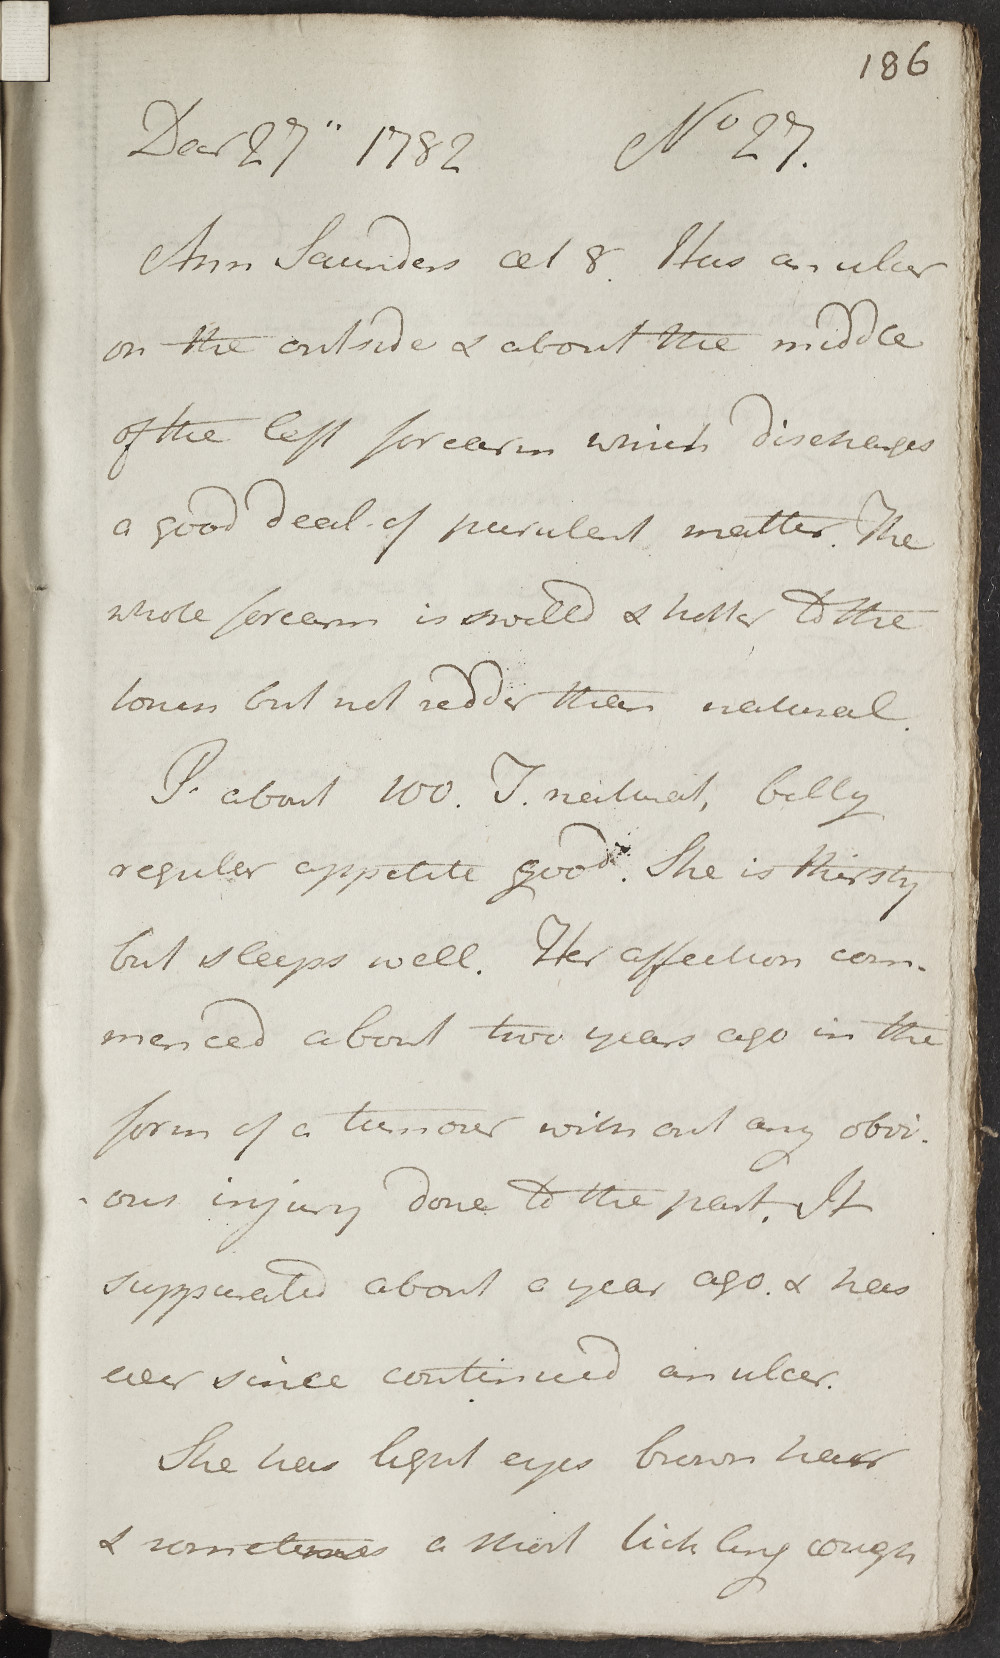 186
Decr 27" 1782 No 27.
Ann Saunders aet 8. Has an ulcer
on the outside & about the middle
of the left forearm which discharges
a good deal of purulent matter. The
whole forearm is swelled & hotter to the
touch but not redder than natural.
P. about 100. T. natural, belly
regular appetite good. She is thirsty
but sleeps well. Her affection com-
menced about two years ago in the
form of a tumour without any obvi-
ous injury done to the part. It
suppurated about a year ago. & has
ever since continued an ulcer.
She has light eyes brown hair
& sometimes a short tickling cough